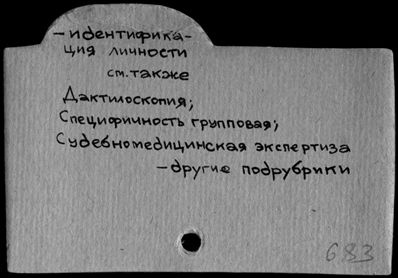 – идентифика-
ция личности
см. также
Дактилоскопия;
Специфичность групповая;
Судебномедицинская экспертиза
– другие подрубрики
683